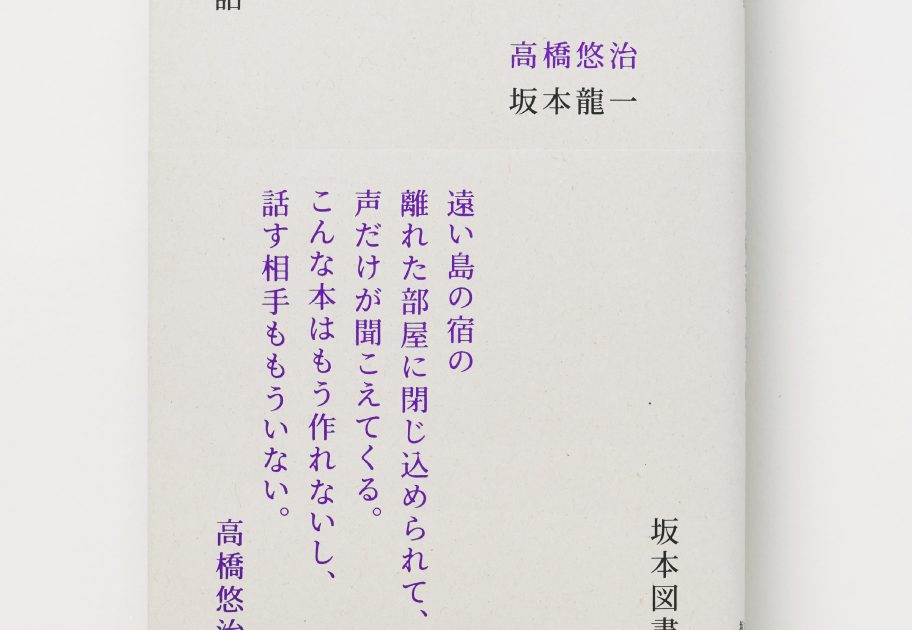 話
高橋悠治
坂本龍一
遠い島の宿の
離れた部屋に閉じ込められて、
声だけが聞こえてくる。
こんな本はもう作れないし、
話す相手ももういない。
高橋悠治
坂本図書